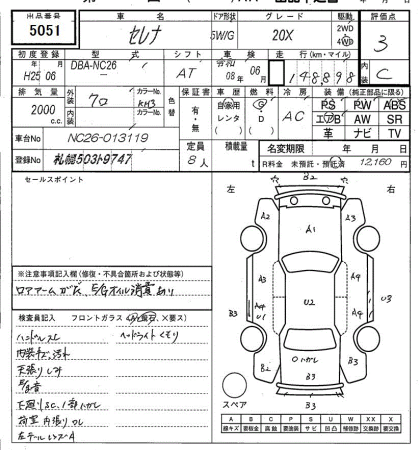 出品番号 車名 ドア形状 グレード 駆動 評価点
5051 セレナ 5W/G 20X 2WD 4WD 3
初度登録 型式 シフト 車検 走行(km・マイル) 内装
H25 06 DBA-NC26 AT 08年 06月 148898 C
排気量 外装色 クロ カラーNo. KH3 色替 保証書 車歴 燃料 冷房 装備(純正部品に限る)
2000 c.c. 内装 カラーNo. 有・無 自家用 レンタ G D AC PS PW ABS
エアB AW SR
革 ナビ TV
車台No NC26-013119 定員 8人 積載量 t 名変期限 年 月 日
登録No 札幌503ト9747 R料金 未預託・預託済 12,160 円
セールスポイント
左 右
B2
A2 A3
A1
A3 A4
U2
A4 U1 A4 U3
B2 B3
B3
スペア B3
※注意事項記入欄(修復・不具合箇所および状態等)
ロアアームガタ、E/Gオイル消費あり
検査員記入 フロントガラス(A、飛石、X要ス)
ハンドルスレ ヘッドライトくもり
内装キズ、汚れ
天張りシミ
下廻りS.C.1部ハガレ
荷室内張りワレ
左テールレンズA
A B C P S U W X XX
線キズ 腐蝕 要塗装 サビ 凹凸 補修跡 交換跡 要交換